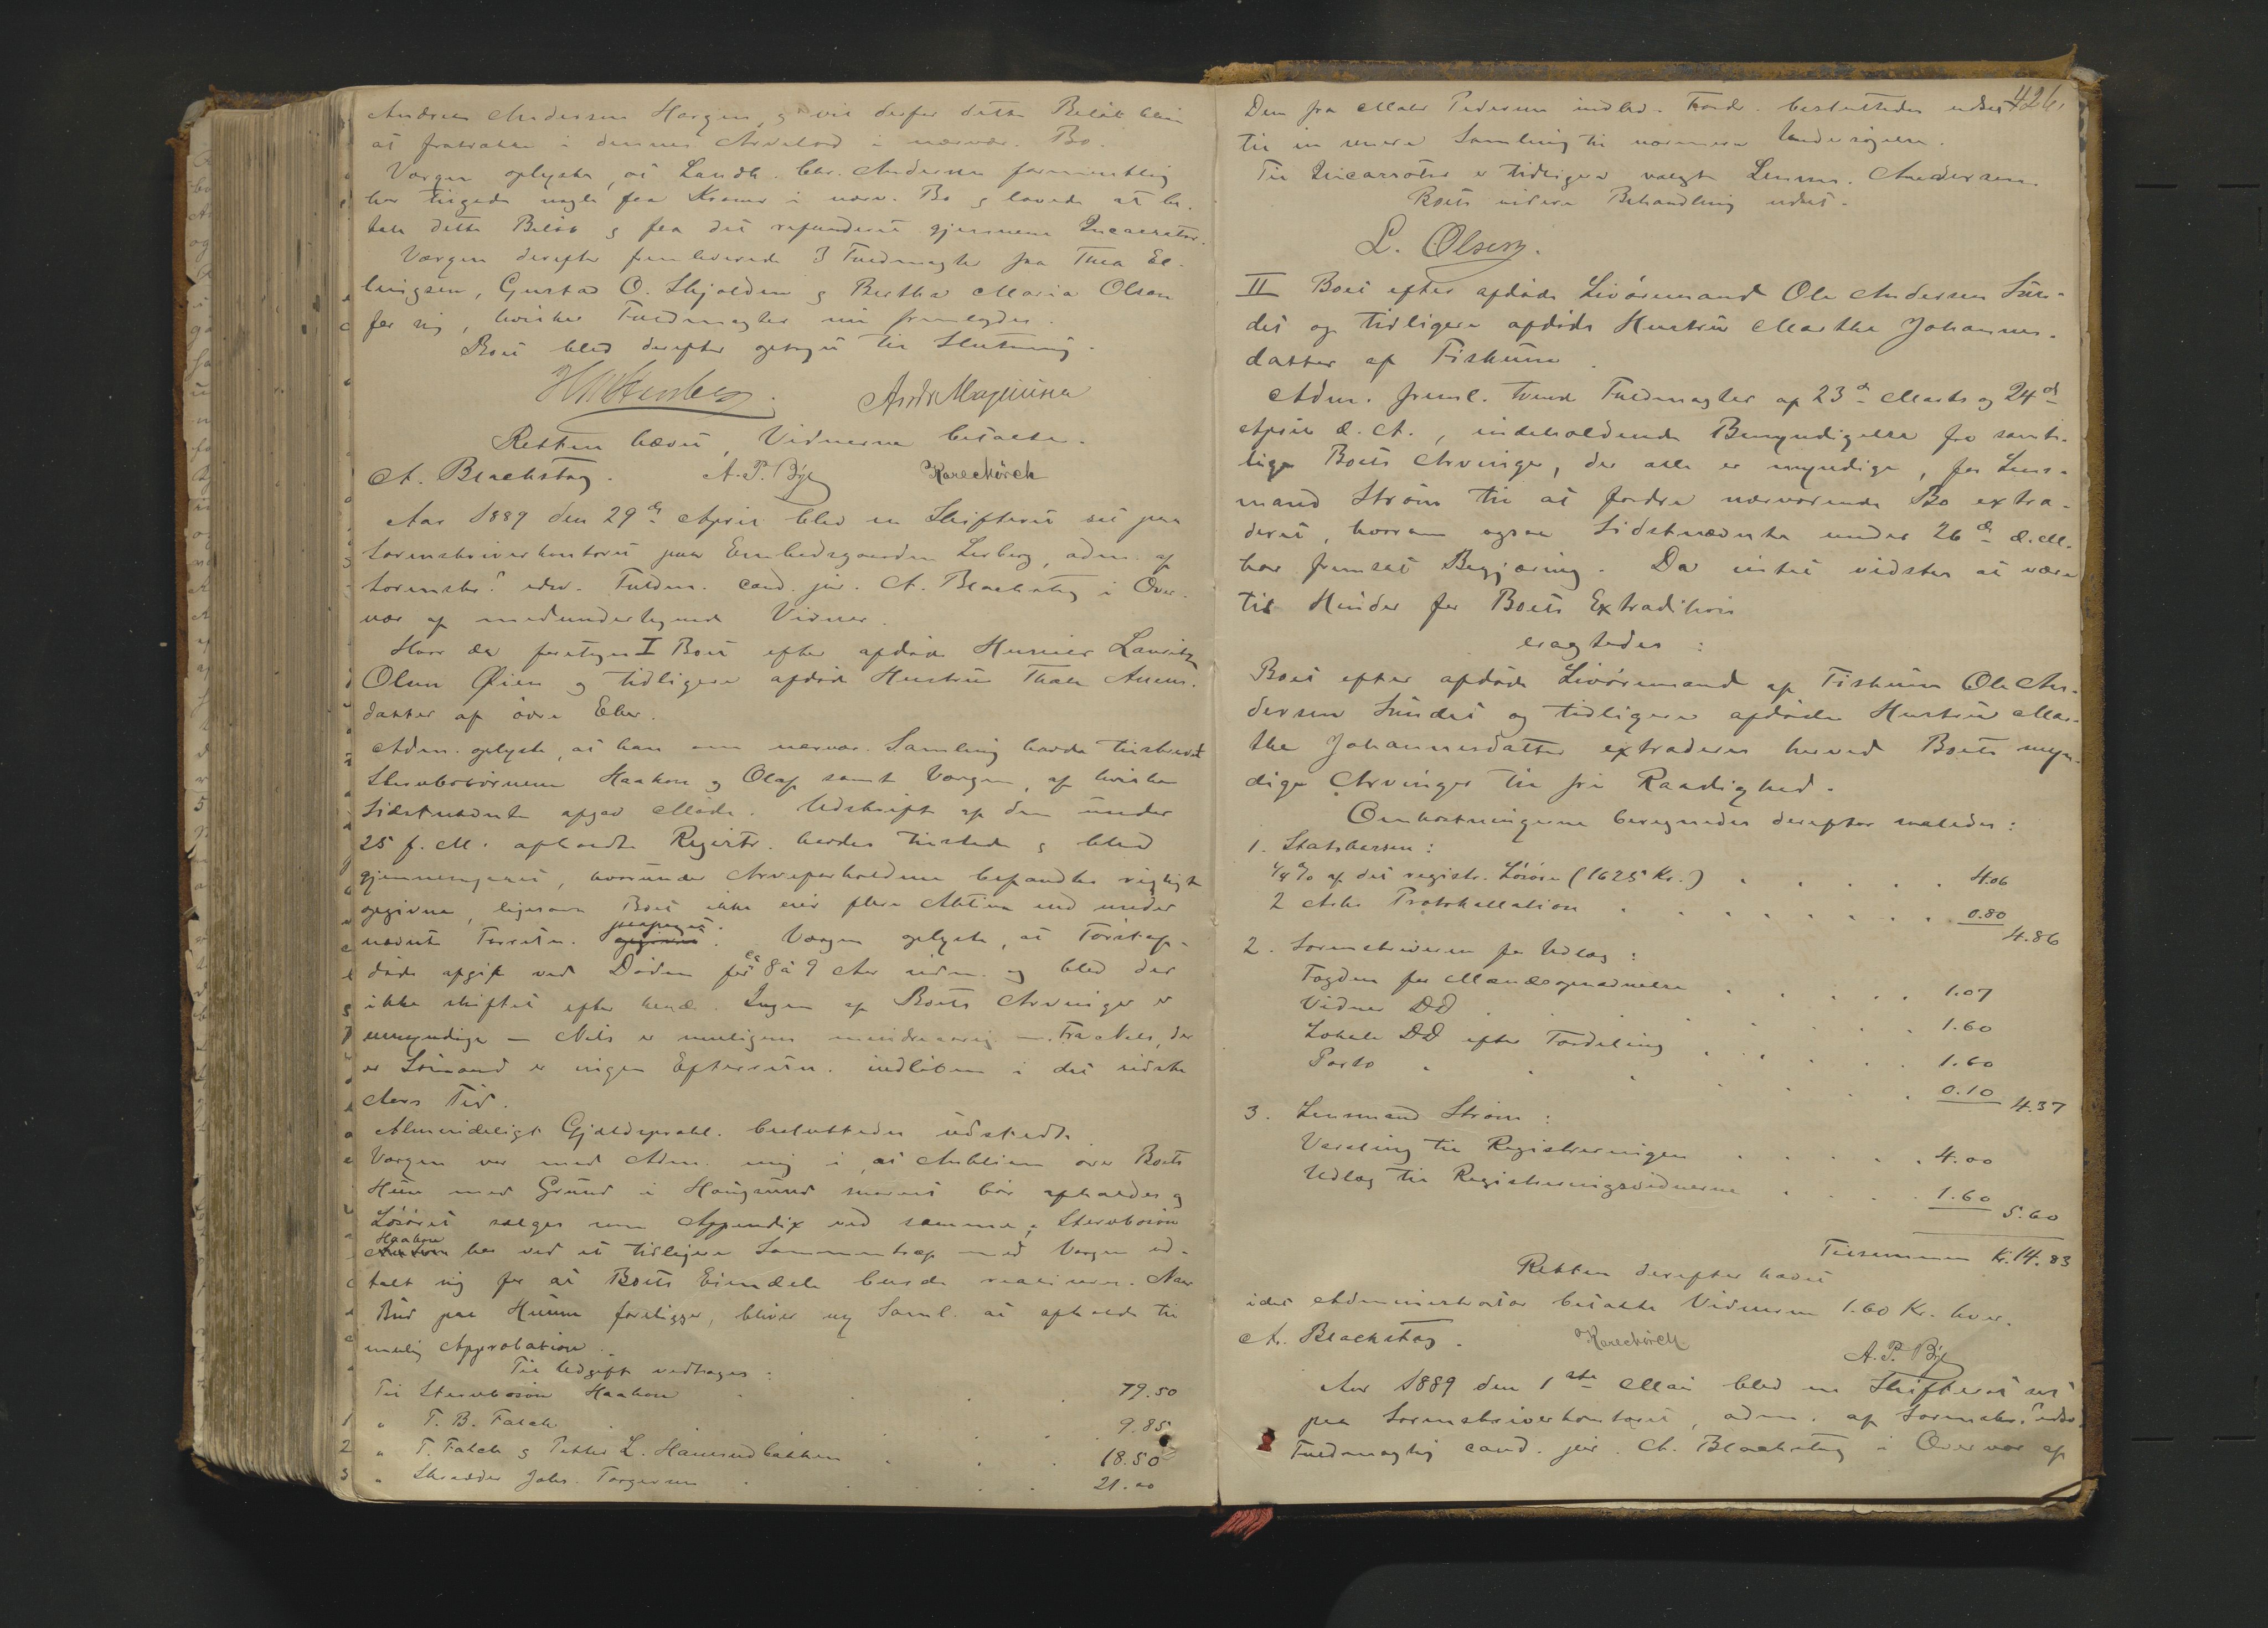 Andreas Andersen Horgen, og vil derfor dette Beløb blive
at fratrække i dennes Arvelod i nærvær. Bo.
Værgen oplyste, at Landh. Chr. Andersen formentlig
har tilgode nogle faa Kroner i nærv. Bo og lovede at be-
tale dette Beløb og faa det refunderet gjennem Incassator.
Værgen derefter fremleverede 3 Fuldmagter fra Thea El-
lingsen, Gustav O. Skjolden og Bertha Maria Olsen
for sig, hvilke Fuldmagter nu fremlagdes.
Boet blev derefter optaget til Slutning.
Retten hævet, Vidnerne betalte.
A. Blackstag. A. P. Bye Kareckørck
Aar 1889 den 29de April blev en Skifteret sat paa
Sorenskriverkontoret paa Embedsgaarden Lerberg, adm. af
Sorenskr.s edsv. Fuldm. cand. jur. A. Blackstag i Over-
vær af medundertegnede Vidner.
Hvor da foretoges I Boet efter afdøde Husmand Lauritz
Olsen Øien og tidligere afdøde Hustru Thale Ams-
datter af øvre Eker.
Adm. oplyste, at han om nærvær. Samling havde tilskrevet
Stervbobørnene Haakon og Olaf samt Værgen, af hvilke
Sidstnævnte afgav Møde. Udskrift af den under
25 f. M. afholdte Registr. havdes tilstede og blev
gjennemgaaet, hvorunder Arveforholdene befandtes rigtigt
opgivne, ligesom Boet ikke eier flere Aktiva end under
nævnte Forretn. paapeget. Værgen oplyste, at Førstaf-
døde afgik ved Døden for ca 8 à 9 Aar siden og blev der
ikke skiftet efter hende. Ingen af Boets Arvinger er
umyndige — Nils er muligens mindreaarig —. Fra Nils, der
er Sømand er ingen Efterretn. indløben i det sidste
Aars Tid.
Almindeligt Gjældsprokl. besluttedes udstedt.
Værgen var med Adm. enig i, at Auktion over Boets
Huse med Grund i Hougsund snarest bør afholdes og
Løsøret sælges som Appendix ved samme; Stervbosøn
Haakon har ved et tidligere Sammentræf med Værgen ud-
talt sig for at Boets Eiendele burde realiseres. Naar
Bud paa Husene foreligger, bliver ny Saml. at afholde til
mulig Approbation.
Til Udgift vedtages:
Til Stervbosøn Haakon 79.50
1 " T. B. Falch 9.85
2 " T. Falch og Petter L. Hamsundbakken 18.50
3 " Skrædder Johs. Torgersen 21.00
426.
Den fra Maler Pedersen indlev. Fordr. besluttedes udsat
til en senere Samling til nærmere Undersøgelse.
Til Incassator er tidligere valgt Lensm. Andersen.
Boets videre Behandling udsat.
L. Olsen.
II Boet efter afdøde Livøremand Ole Andersen Sun-
det og tidligere afdøde Hustru Marthe Johannes-
datter af Fiskum.
Adm. freml. tvende Fuldmagter af 23de Marts og 24de
April d. A., indeholdende Bemyndigelse fra samt-
lige Boets Arvinger, der alle er myndige, for Lens-
mand Strøm til at fordre nærværende Bo extra-
deret, hvorom ogsaa Sidstnævnte under 26de d. M.
har fremsat Begjæring. Da intet vidstes at være
til Hinder for Boets Extradition
eragtedes:
Boet efter afdøde Livøremand af Fiskum Ole An-
dersen Sundet og tidligere afdøde Hustru Mar-
the Johannesdatter extraderes herved Boets myn-
dige Arvinger til fri Raadighed.
Omkostningerne beregnedes derefter saaledes:
1. Statskassen:
1/4 % af det registr. Løsøre (1625 Kr.) 4.06
2 Arks Protokollation 0.80
4.86
2. Sorenskriveren for Udlæg:
Fogden for Mændsopnævnelse 1.07
Vidner DD 1.60
Lokale DD efter Fordeling 1.60
Porto 0.10
4.37
3. Lensmand Strøm:
Varsling til Registreringen 4.00
Udlæg til Registreringsvidnerne 1.60
5.60
Tilsammen Kr. 14.83
Retten derefter hævet
idet Administrator betalte Vidnerne 1.60 Kr. hver.
A. Blackstag. Kareckørck
A. P. Bye
Aar 1889 den 1ste Mai blev en Skifteret sat
paa Sorenskriverkontoret, adm. af Sorenskr.s edsv.
Fuldmægtig cand. jur. A. Blackstag i Overvær af